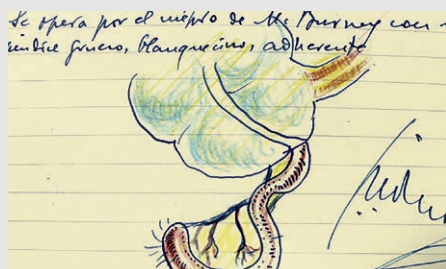 Se opera por el mismo de Mc Burney con
apéndice grueso, blanquecino, adherente